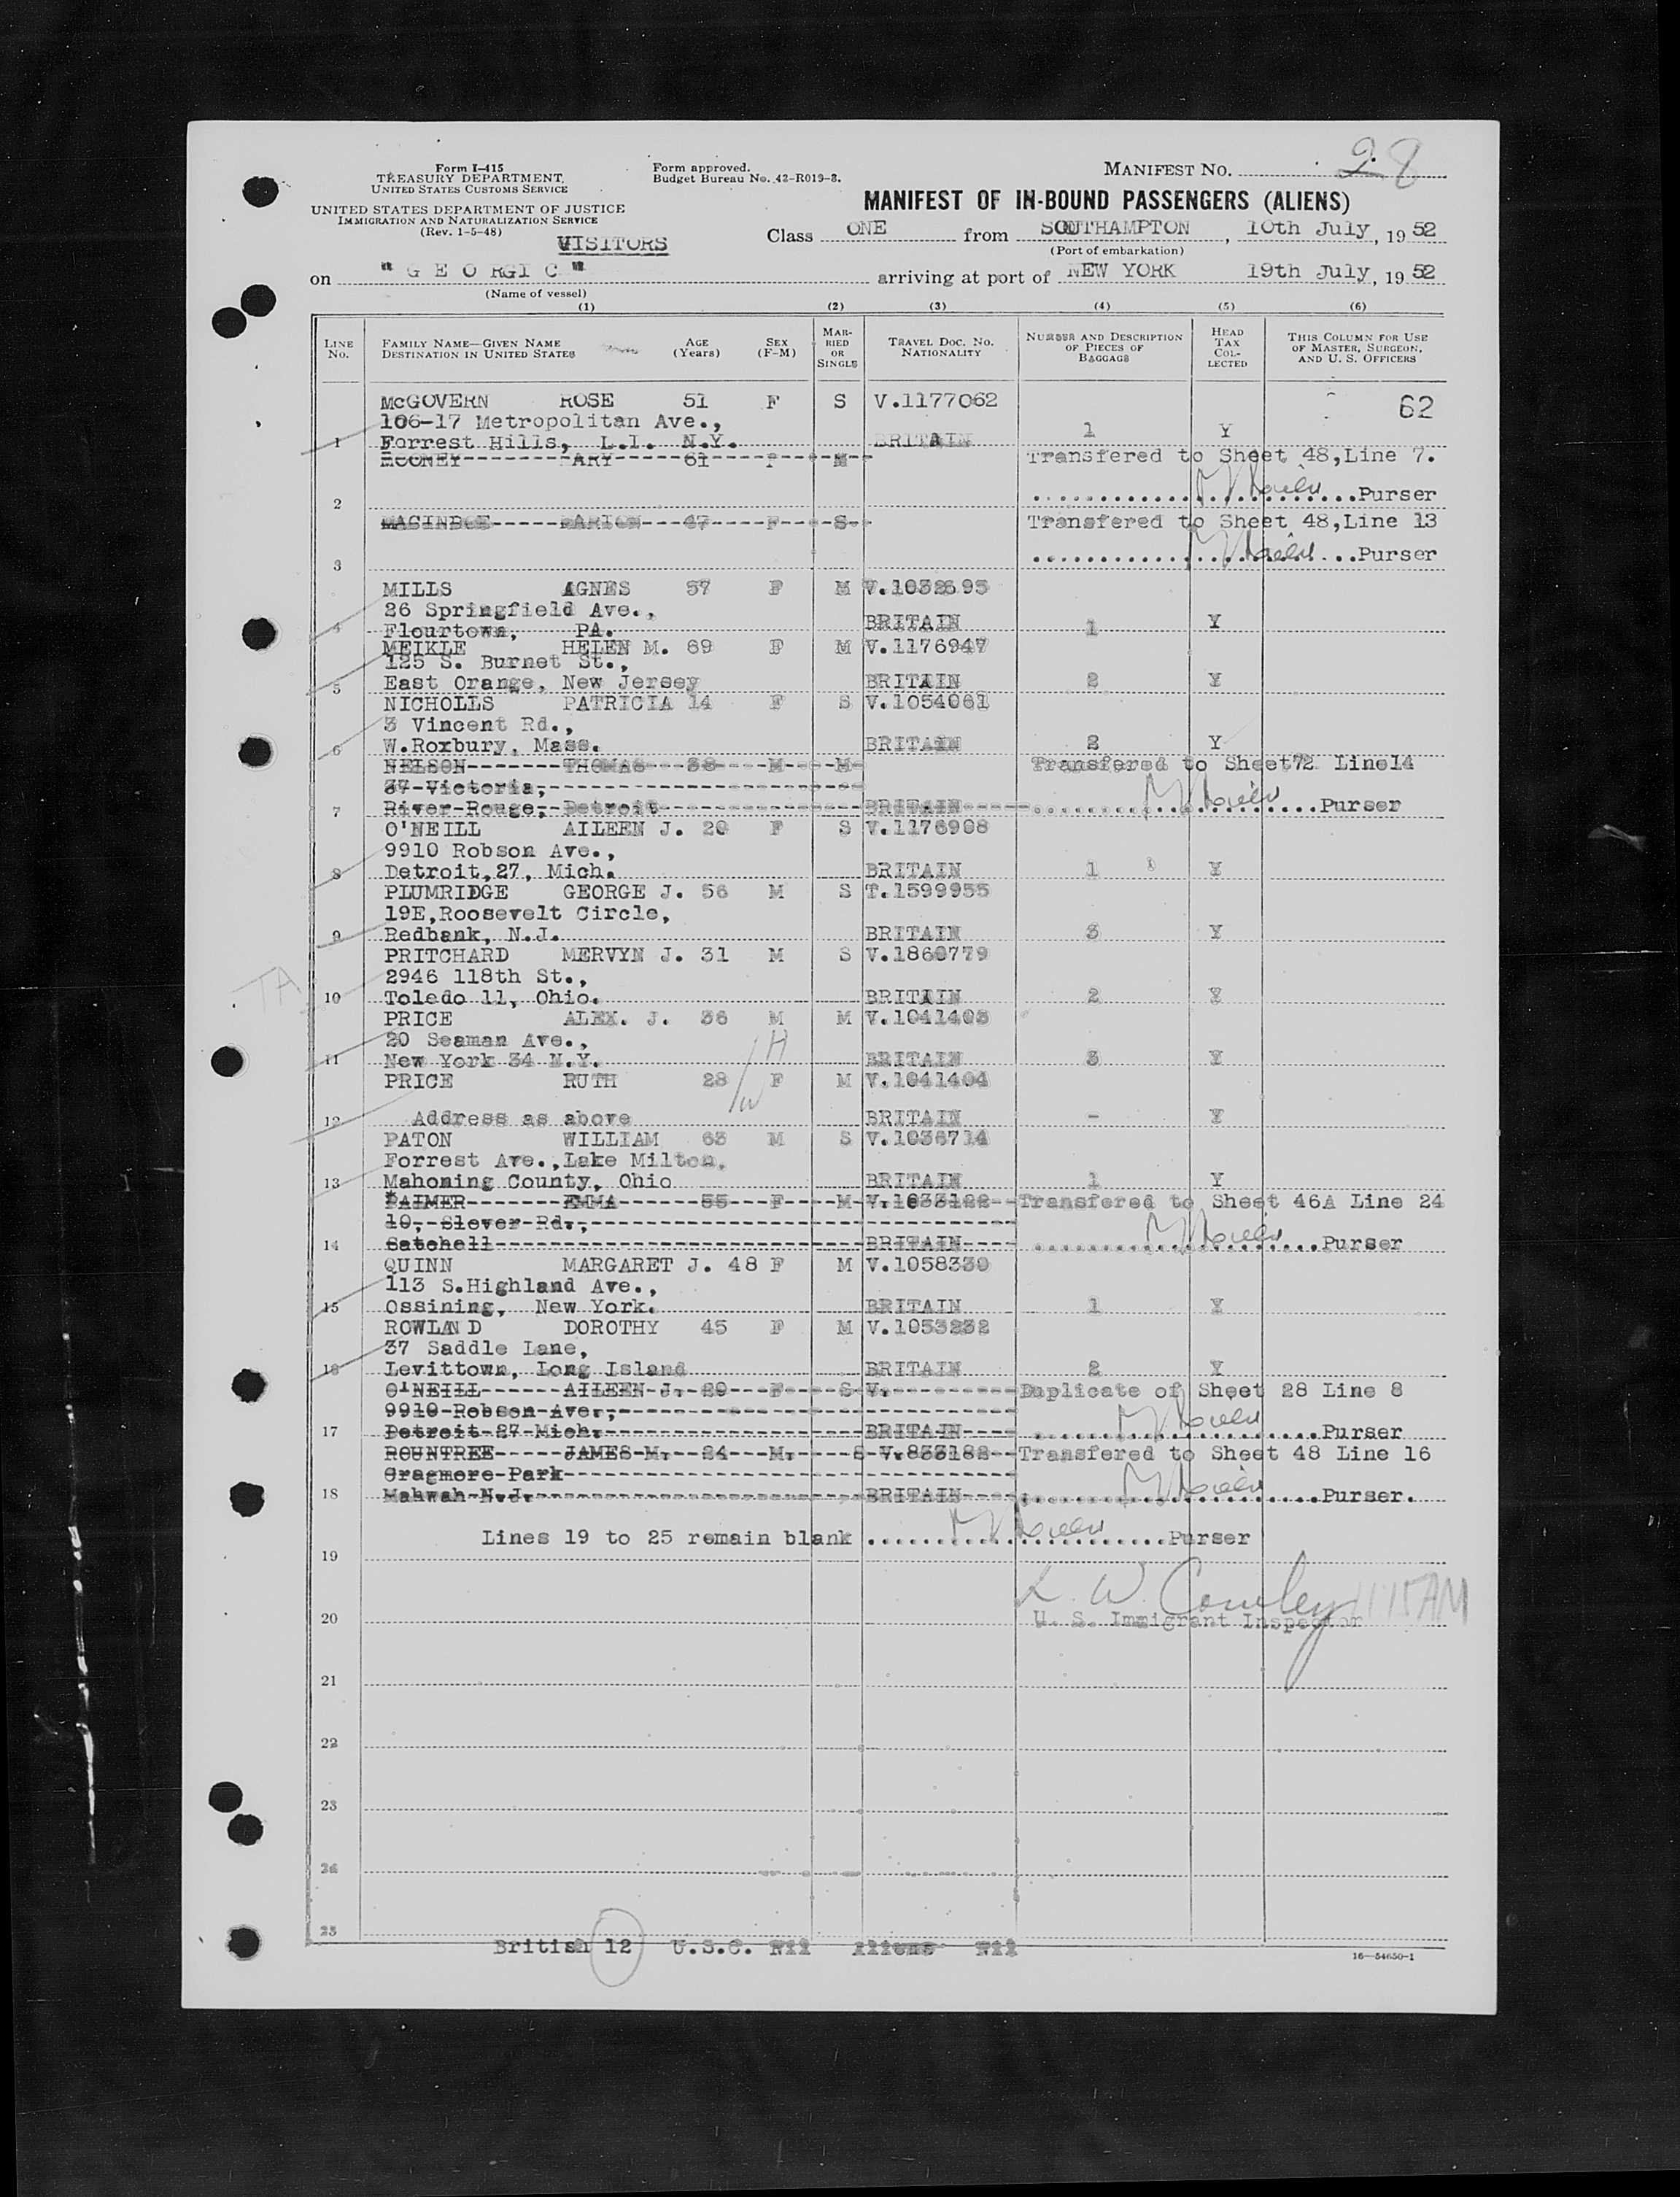 Form I-415
TREASURY DEPARTMENT
UNITED STATES CUSTOMS SERVICE
UNITED STATES DEPARTMENT OF JUSTICE
IMMIGRATION AND NATURALIZATION SERVICE
(Rev. 1-5-48)
Form approved.
Budget Bureau No. 43-R019-3.
MANIFEST NO. 28
MANIFEST OF IN-BOUND PASSENGERS (ALIENS)
VISITORS
Class ONE from SOUTHAMPTON, 10th July, 1952
(Port of embarkation)
on "GEORGIC" arriving at port of NEW YORK 19th July, 1952
(Name of vessel)
(1) (2) (3) (4) (5) (6)
LINE NO. FAMILY NAME—GIVEN NAME DESTINATION IN UNITED STATES AGE (Years) SEX (F-M) MARRIED OR SINGLE TRAVEL DOC. NO. NATIONALITY NUMBER AND DESCRIPTION OF PIECES OF BAGGAGE HEAD TAX COLLECTED THIS COLUMN FOR USE OF MASTER, SURGEON, AND U. S. OFFICERS
McGOVERN ROSE 51 F S V.1177062 62
106-17 Metropolitan Ave.,
1 Forrest Hills, L.I. N.Y. BRITAIN 1 Y
MOONEY MARY 61 F M Transfered to Sheet 48,Line 7.
2 Purser
MACINDOE MARION 47 F S Transfered to Sheet 48,Line 13
3 Purser
MILLS AGNES 57 F M V.1032695
26 Springfield Ave.,
4 Flourtown, PA. BRITAIN 1 Y
MEIKLE HELEN M. 69 F M V.1176947
125 S. Burnet St.,
5 East Orange, New Jersey BRITAIN 2 Y
NICHOLLS PATRICIA 14 F S V.1054061
3 Vincent Rd.,
6 W.Roxbury, Mass. BRITAIN 2 Y
NELSON THOMAS 38 M M Transfered to Sheet72 Line14
37 Victoria,
7 River Rouge, Detroit BRITAIN Purser
O'NEILL AILEEN J. 20 F S V.1176908
9910 Robson Ave.,
8 Detroit,27, Mich. BRITAIN 1 Y
PLUMRIDGE GEORGE J. 56 M S T.1599955
19E,Roosevelt Circle,
9 Redbank, N.J. BRITAIN 3 Y
PRITCHARD MERVYN J. 31 M S V.1860779
2946 118th St.,
TA
10 Toledo 11, Ohio. BRITAIN 2 Y
PRICE ALEX. J. 36 M M V.1041403
20 Seaman Ave.,
H
11 New York 34 N.Y. BRITAIN 3 Y
PRICE RUTH 28 F M V.1041404
W
12 Address as above BRITAIN - Y
PATON WILLIAM 63 M S V.1036714
Forrest Ave.,Lake Milton,
13 Mahoning County, Ohio BRITAIN 1 Y
PALMER EMMA 55 F M V.1033122 Transfered to Sheet 46A Line 24
10, Slever Rd.,
14 Satchell BRITAIN Purser
QUINN MARGARET J. 48 F M V.1058330
113 S.Highland Ave.,
15 Ossining, New York. BRITAIN 1 Y
ROWLAND DOROTHY 45 F M V.1053232
37 Saddle Lane,
16 Levittown, Long Island BRITAIN 2 Y
O'NEILL AILEEN J. 20 F S V. Duplicate of Sheet 28 Line 8
9910 Robson Ave.,
17 Detroit 27 Mich. BRITAIN Purser
ROUNTREE JAMES M. 24 M. S V.833182 Transfered to Sheet 48 Line 16
Cragmere Park
18 Mahwah N.J. BRITAIN Purser.
Lines 19 to 25 remain blank Purser
19
L. W. Conley 11 15 AM
20 U. S. Immigrant Inspector
21
22
23
25
British 12 U.S.C. Nil Aliens Nil
16—54650-1